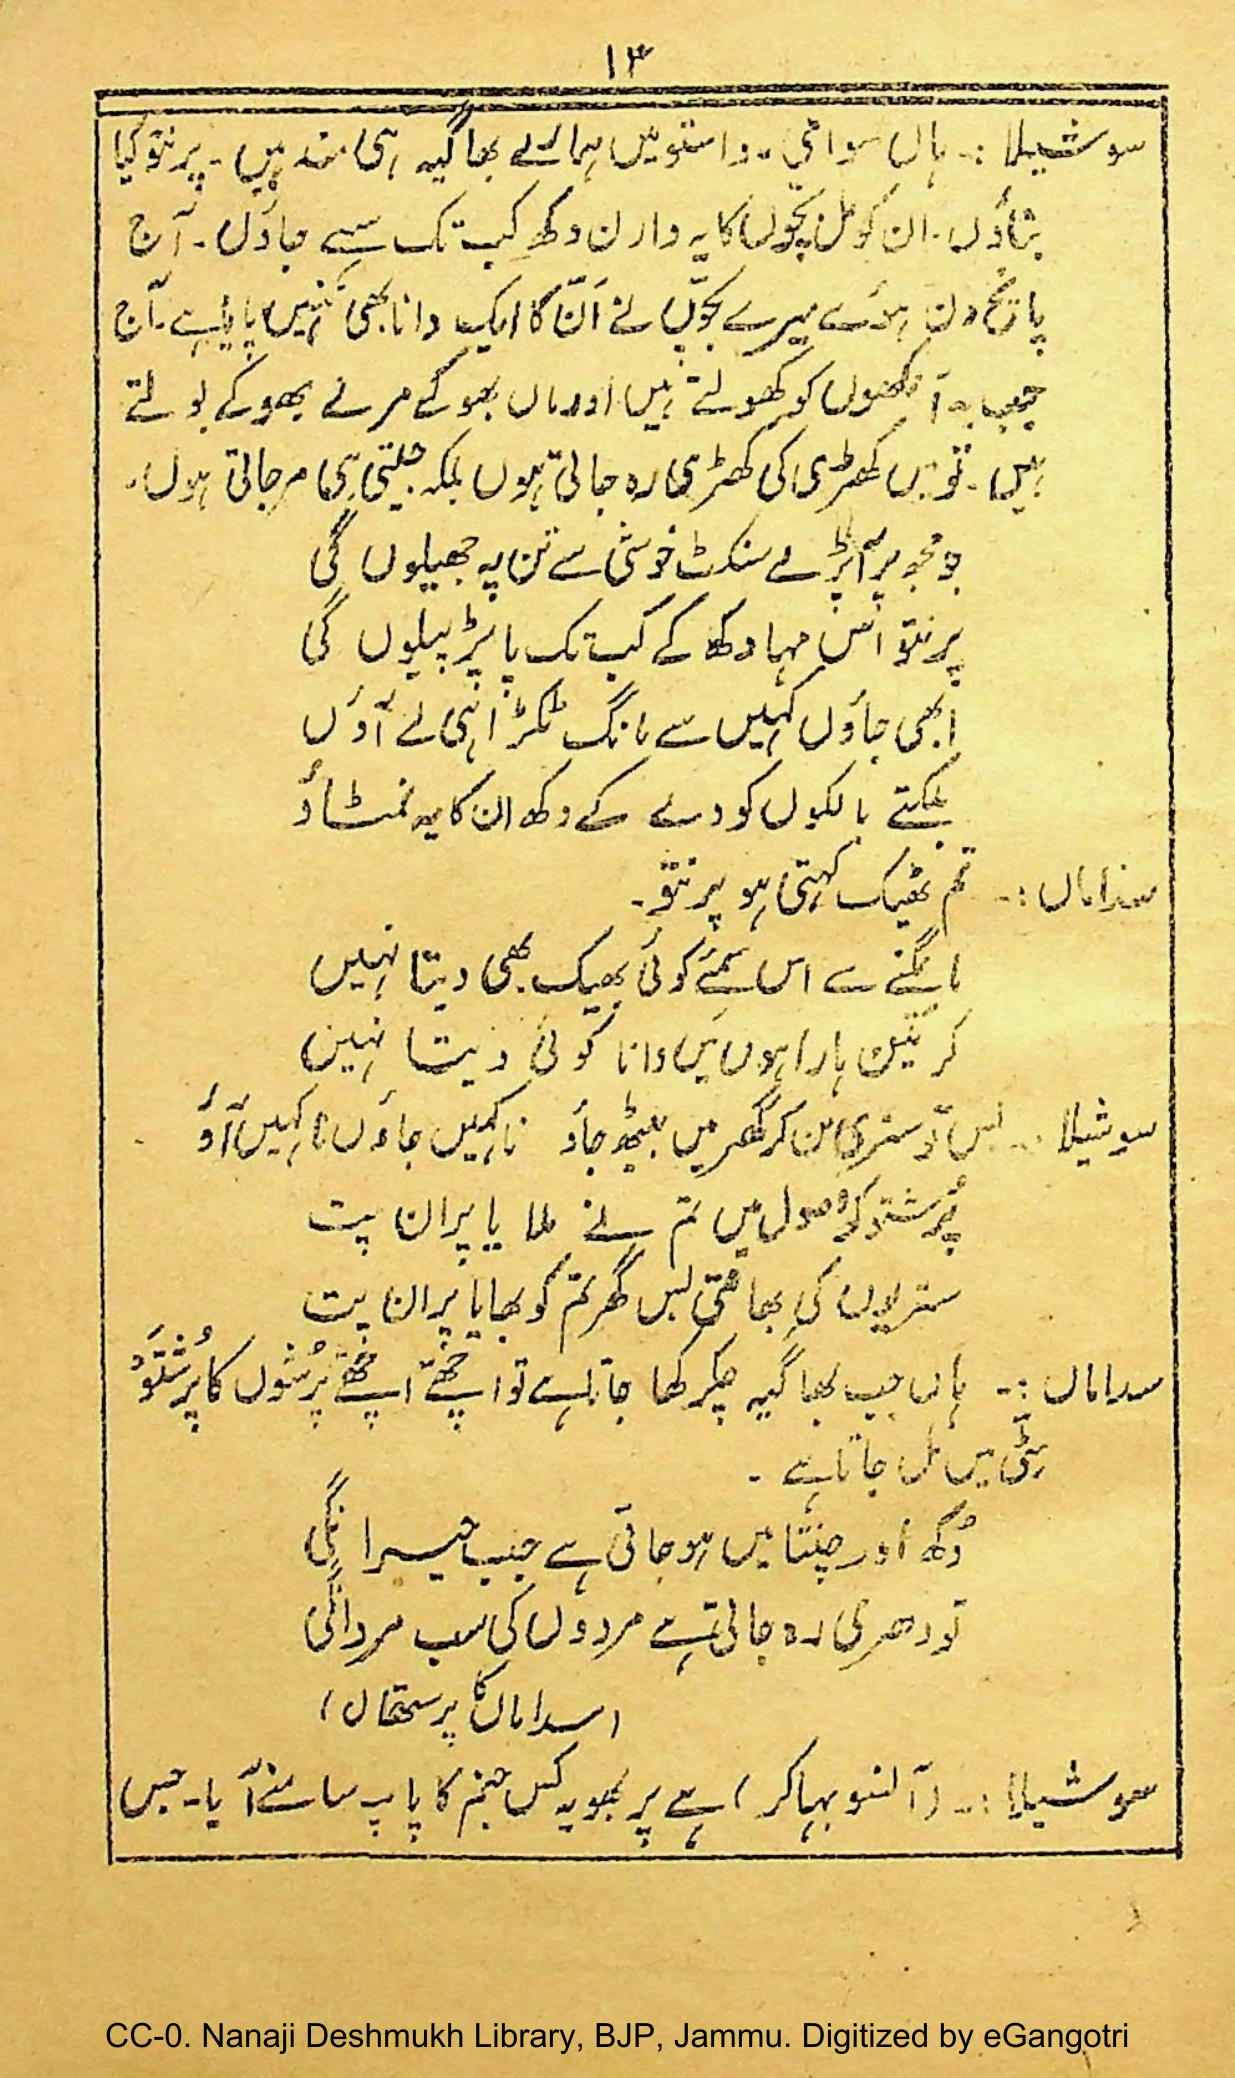 ۱۳
سوشیلا :- ہاں سوامی۔ واستو میں ہمارے بھاگیہ ہی مند ہیں۔ پرنتو کیا
بتاؤں۔ ان کومل بچوں کا یہ دارن دکھ کب تک سہے جاؤں۔ آج
پانچ دن ہوئے میرے بچوں نے اَنّ کا ایک دانا بھی نہیں پایا ہے۔ آج
جب یہ آنکھوں کو کھولتے ہیں اور ماں بھوکے مرے بھوکے بولتے
ہیں۔ تو میں کھڑی کی کھڑی رہ جاتی ہوں بلکہ جیتی ہی مر جاتی ہوں۔
جو مجھ پر آ پڑے سنکٹ خوشی سے تن پہ جھیلوں گی
پرنتو اس مہا دکھ کے کب تک پاپڑ بیلوں گی
ابھی جاؤں کہیں سے مانگ ٹکڑا ہی لے آؤں
بلکتے بالکوں کو دے کے دکھ ان کا یہ نمٹاؤ
سداماں :- تم ٹھیک کہتی ہو پرنتو۔
مانگنے سے اس سمئے کوئی بھیک بھی دیتا نہیں
کر یتن ہارا ہوں میں دانا کوئی دیتا نہیں
سوشیلا :- بس تو ستری بن کر گھر میں بیٹھ جاؤ نا کہیں جاؤں نا کہیں آؤ
پُرشتو کو دھول میں تم نے ملا یا پران پت
ستریوں کی بھانتی بس گھر تم کو بھایا پران پت
سداماں :- ہاں جب بھاگیہ چکر کھا جاتا ہے تو اچھے اچھے پُرشوں کا پُرشتَو
مٹی میں مل جاتا ہے۔
دُکھ اور چنتا میں ہو جاتی ہے جب حیرانگی
تو دھری رہ جاتی ہے مردوں کی سب مردانگی
(سداماں کا پرستھان)
سوشیلا :- (آنسو بہا کر) ہے پربھو یہ کس جنم کا پاپ سامنے آیا۔ جس
CC-0. Nanaji Deshmukh Library, BJP, Jammu. Digitized by eGangotri